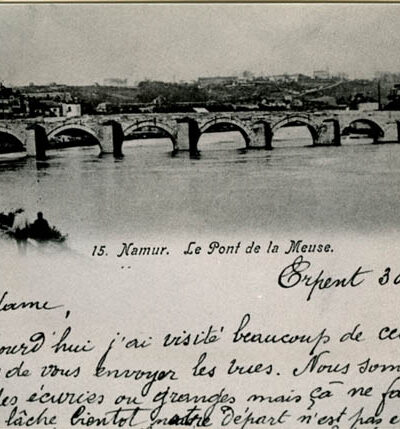 15. Namur. Le Pont de la Meuse.
Erpent 30
dame,
ourd'hui j'ai visité beaucoup de ce
de vous envoyer les vues. Nous som
des écuries ou granges mais çà ne fa
lâche bientot notre Départ n'est pas e